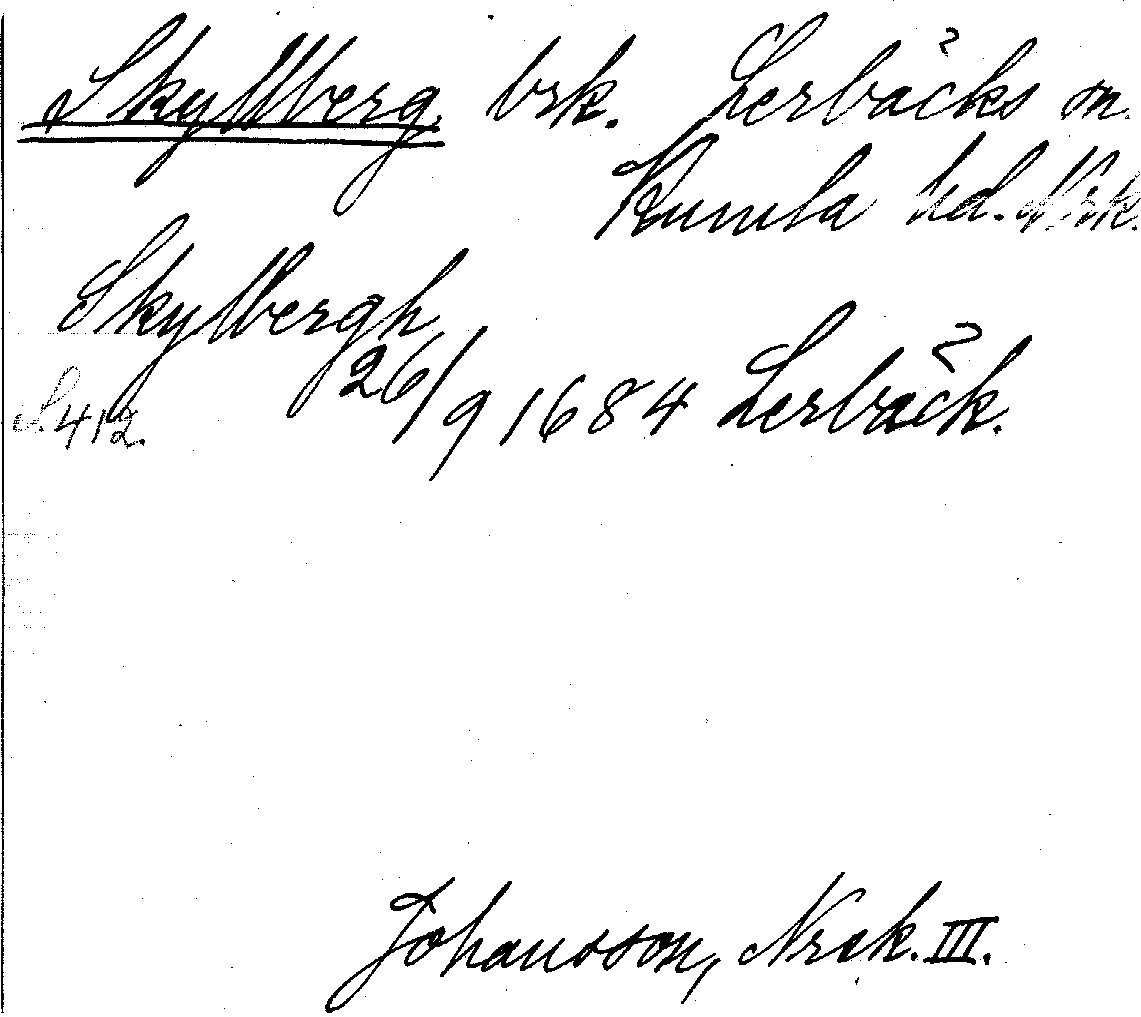 Skyllberg. brk. Lerbäcks sn.
Kumla hd. Nrk.
Skylbergh
S. 412. 26/9 1684 Lerbäck.
Johansson, Nrck. III.